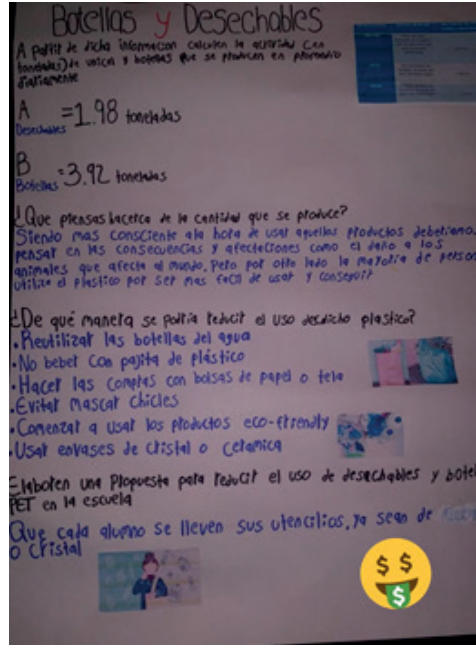 Botellas y Desechables
A partir de dicha informacion calculen la cantidad (en
toneladas) de unicel y botellas que se producen en promedio
diariamente
A =1.98 toneladas
Desechables
B =3.92 toneladas
Botellas
¿Que piensas hacerca de la cantidad que se produce?
Siendo mas consciente a la hora de usar aquellos productos deberiamos
pensar en las consecuencias y afectaciones como el daño a los
animales que afecta al mundo, Pero por otro lado la mayoria de person
utiliza el plastico por ser mas facil de usar y conseguir
¿De qué manera se podria reducir el uso de dicho plastico?
• Reutilizar las botellas del agua
• No beber con pajita de plástico
• Hacer las compras con bolsas de papel o tela
• Evitar mascar chicles
• Comenzar a usar los productos eco-friendly
• Usar envases de cristal o ceramica
Elaboren una Propuesta para reducir el uso de desechables y botel
PET en la escuela
Que cada alumno se lleven sus utencilios, ya sean de
o cristal
$ $
$